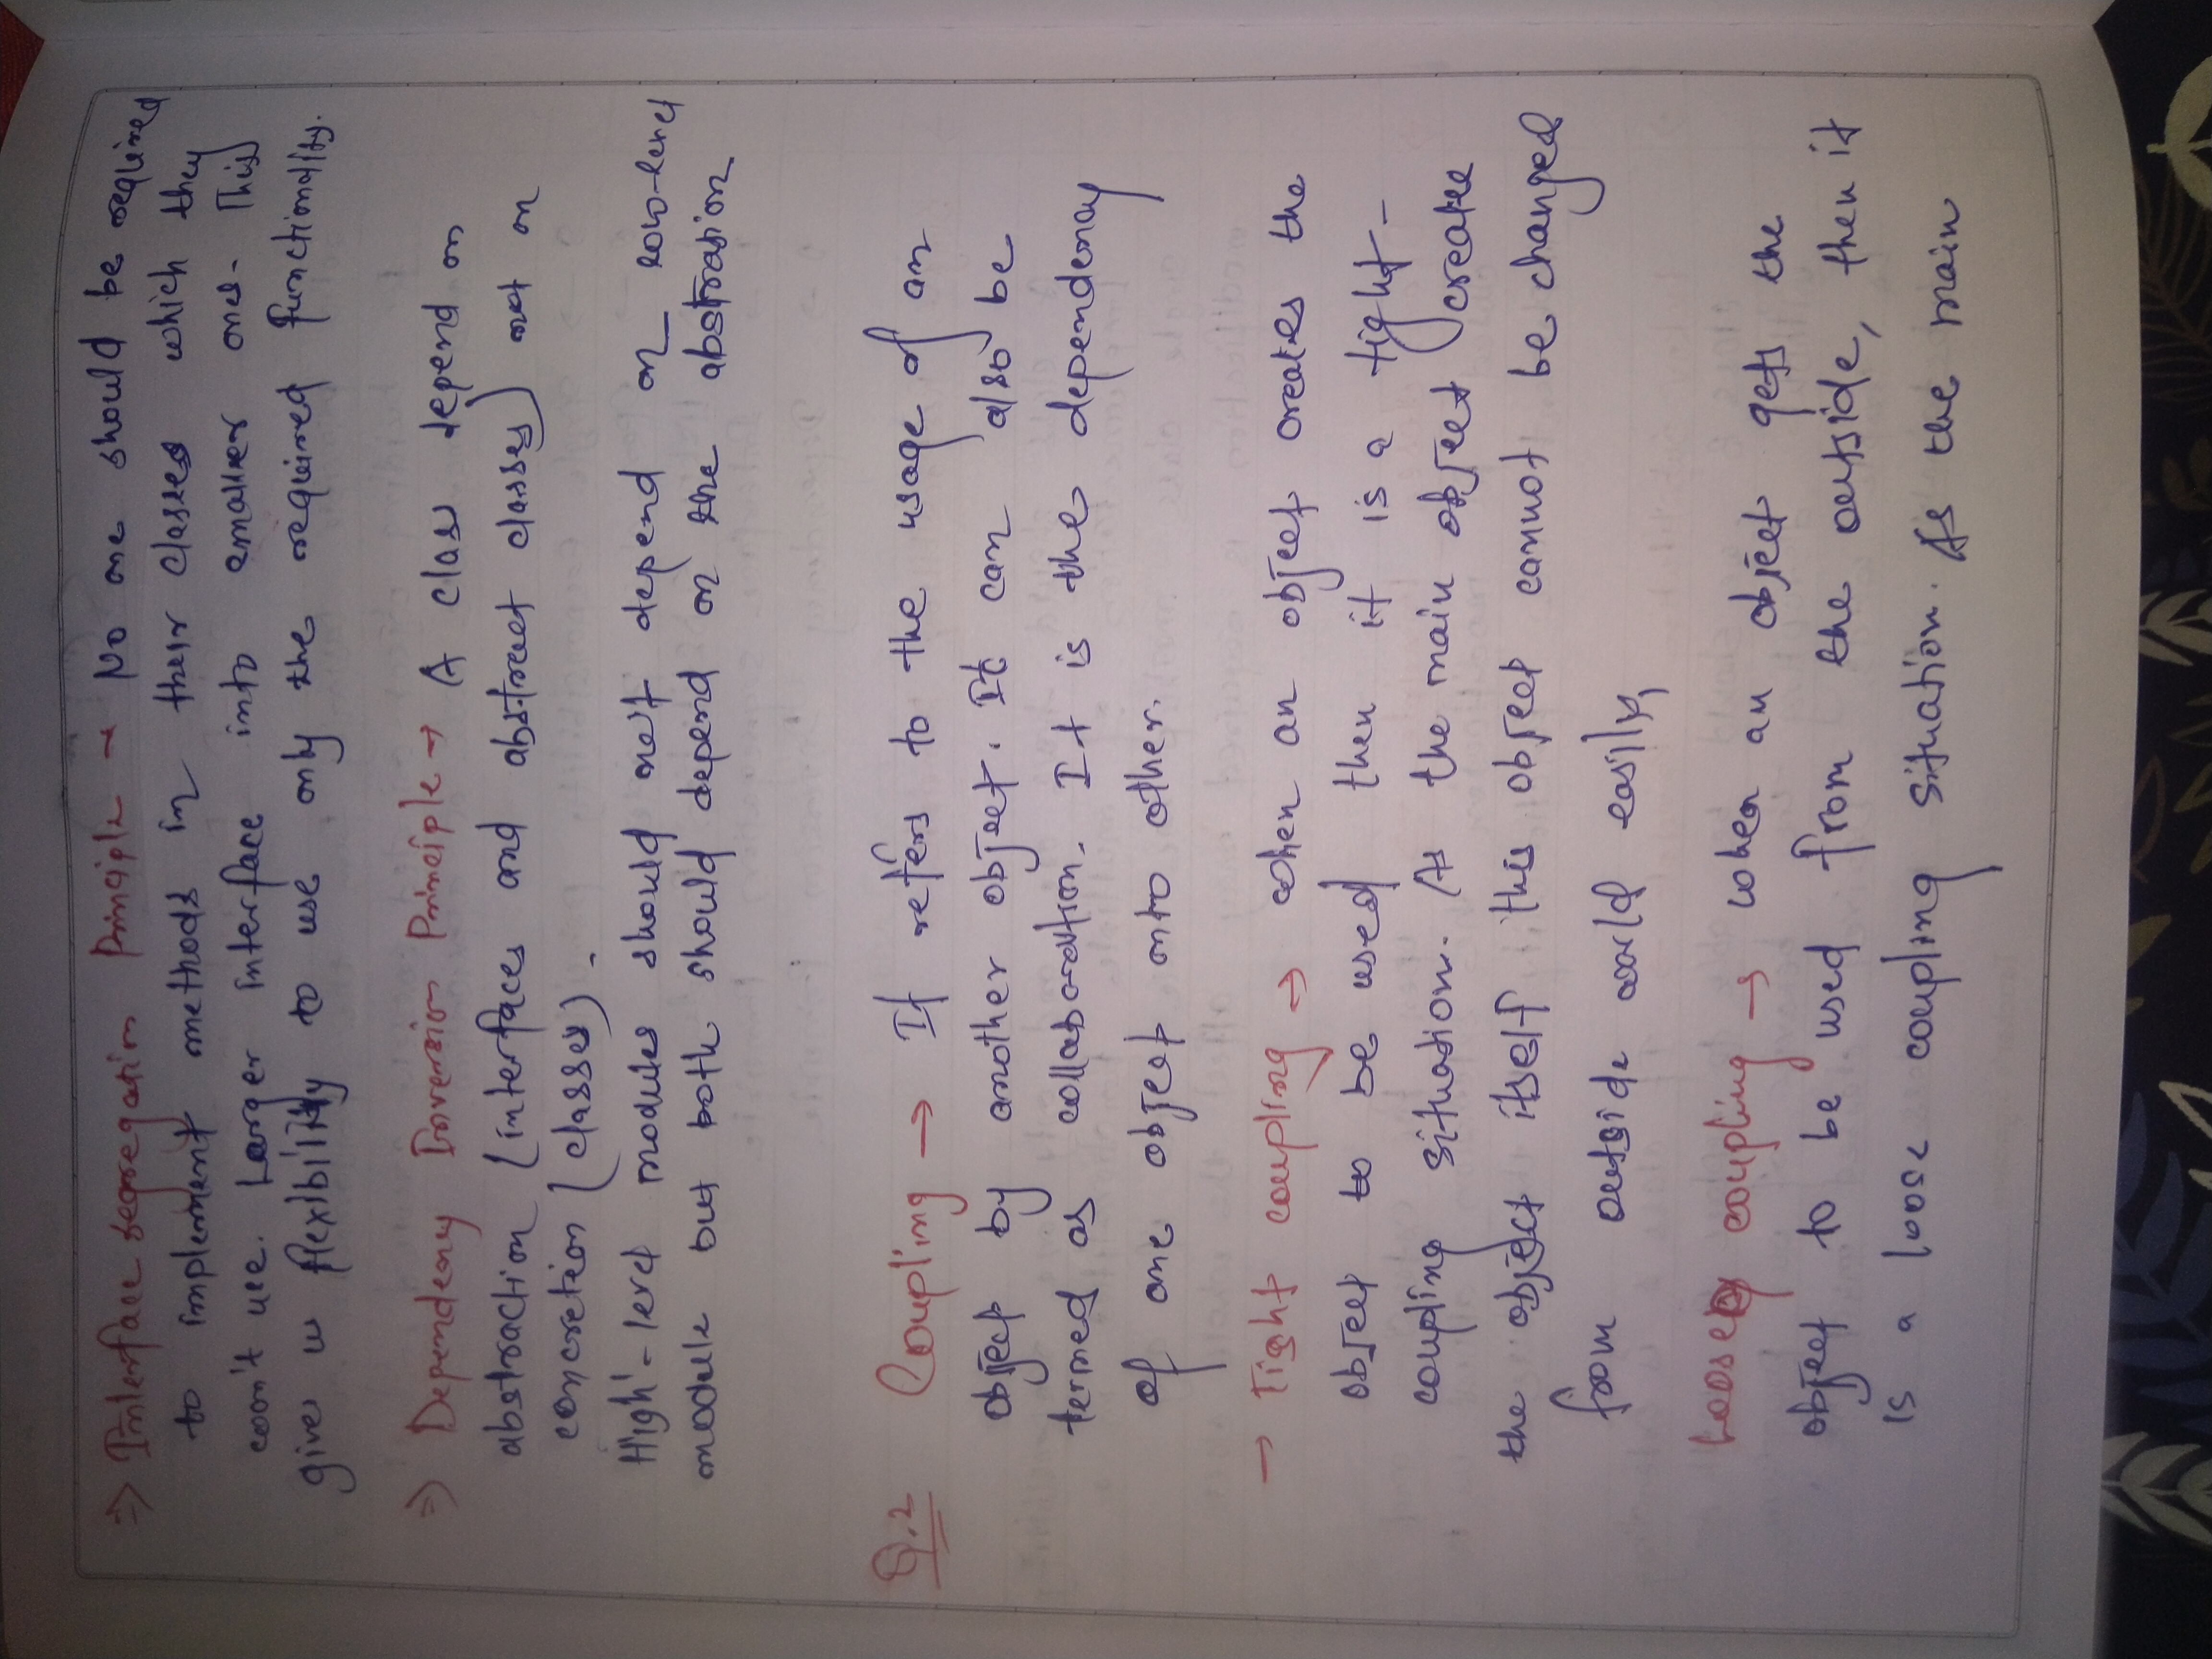 => Interface segregation Principle → No one should be required
to implement methods in their classes which they
won't use. Larger interface into smaller one. This
gives us flexibility to use only the required functionality.
=> Dependency Inversion Principle → A class depend on
abstraction (interfaces and abstract classes) not on
concretion (classes).
High-level modules should not depend on low-level
module but both should depend on the abstraction
Q.2 Coupling → It refers to the usage of an
object by another object. It can also be
termed as collaboration. It is the dependency
of one object onto other.
→ Tight coupling → when an object creates the
object to be used then it is a tight-
coupling situation. As the main object create
the object itself this object cannot be changed
from outside world easily,
Loose coupling → when an object gets the
object to be used from the outside, then it
is a loose coupling situation. As the main